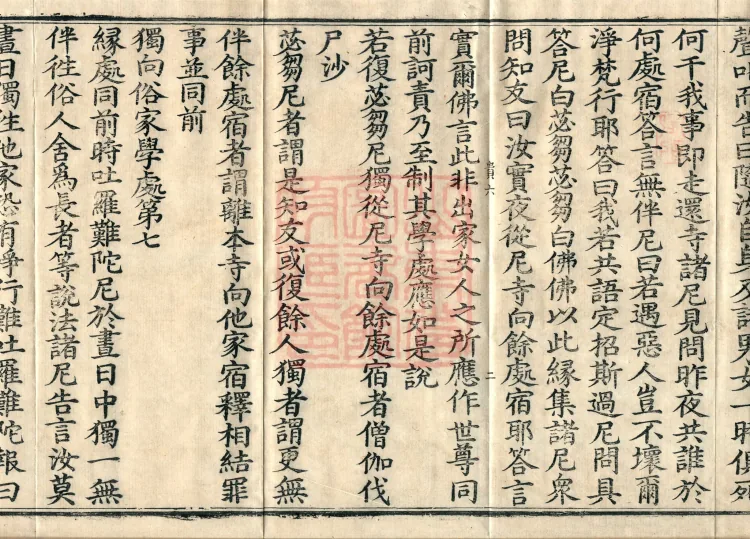 何干我事即走還寺諸尼見問昨夜共誰於
何處宿答言無伴尼曰若遇惡人豈不壞爾
淨梵行耶答曰我若共語定招斯過尼問具
答尼白苾芻苾芻白佛佛以此緣集諸尼衆
問知友曰汝實夜從尼寺向餘處宿耶答言
實爾佛言此非出家女人之所應作世尊同
賞六
二
前訶責乃至制其學處應如是說
若復苾芻尼獨從尼寺向餘處宿者僧伽伐
尸沙
苾芻尼者謂是知友或復餘人獨者謂更無
伴餘處宿者謂離本寺向他家宿釋相結罪
事並同前
獨向俗家學處第七
緣處同前時吐羅難陀尼於晝日中獨一無
伴徃俗人舍爲長者等說法諸尼告言汝莫
晝日獨徃他家恐有淨行難吐羅難陀報曰